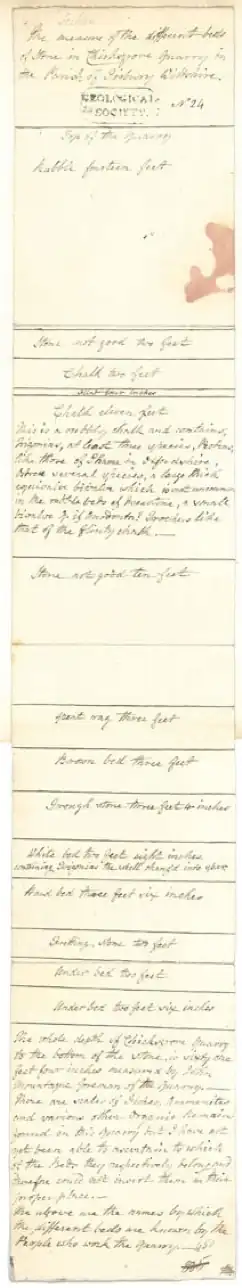 The measure of the different beds
of Stone in Chicksgrove Quarry in
the Parish of Tisbury Wiltshire.
GEOLOGICAL
SOCIETY.
No 24
Top of the Quarry
Rubble fourteen feet
Stone not good two feet
Chalk two feet
Flint four inches
Chalk eleven feet
This is a rubbly chalk and contains,
Trigonias, at least three species, Pectens,
like those of Thame in Oxfordshire,
several species, a large thick
bivalve which is not uncommon
in the rubble beds of freestone, a small
bivalve
that of the flinty chalk.
Stone not good ten feet
great rag three feet
Brown bed three feet
Trough stone three feet 10 inches
White bed two feet eight inches
containing Trigonias the shell changed into
Hard bed three feet six inches
Fretting Stone two feet
Under bed two feet
Under bed two feet six inches
The whole depth of Chicksgrove Quarry
to the bottom of the Stone, is sixty one
feet four inches measured by John
Mountague foreman of the Quarry.
There are scales of fishes, Ammonites
and various other Organic Remains
found in this Quarry but I have not
yet been able to ascertain to which
of the Beds they respectively belong and
therefore could not insert them in their
proper place.
The above are the names by which
the different beds are known by the
People who work the Quarry